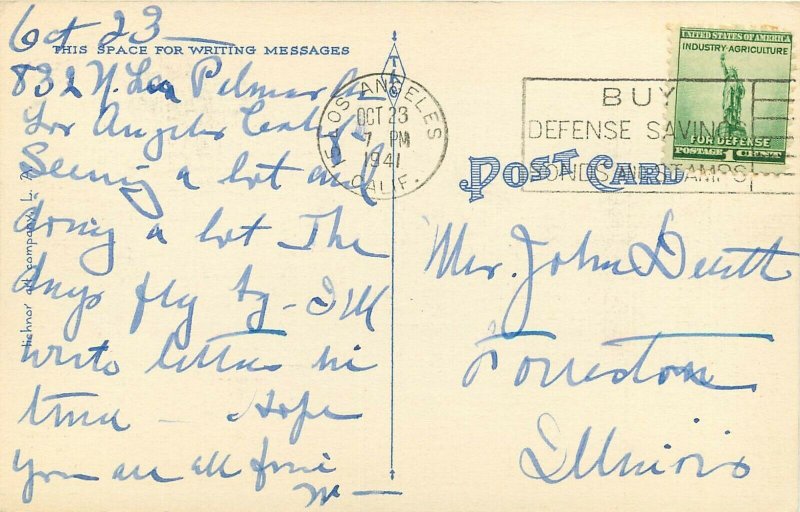 Oct 23—
THIS SPACE FOR WRITING MESSAGES
832 N. Las Palmas Av
Los Angeles Calif
Seeing a lot and
doing a lot The
days fly by – I'll
write letter in
time — Hope
you are all fine
M—
tichnor art company L. A.
LOS ANGELES
OCT 23
7 PM
1941
CALIF.
BUY
DEFENSE SAVINGS
BONDS AND STAMPS
UNITED STATES OF AMERICA
INDUSTRY-AGRICULTURE
FOR DEFENSE
POSTAGE 1 CENT
POST CARD
Mr. John
Forreston
Illinois